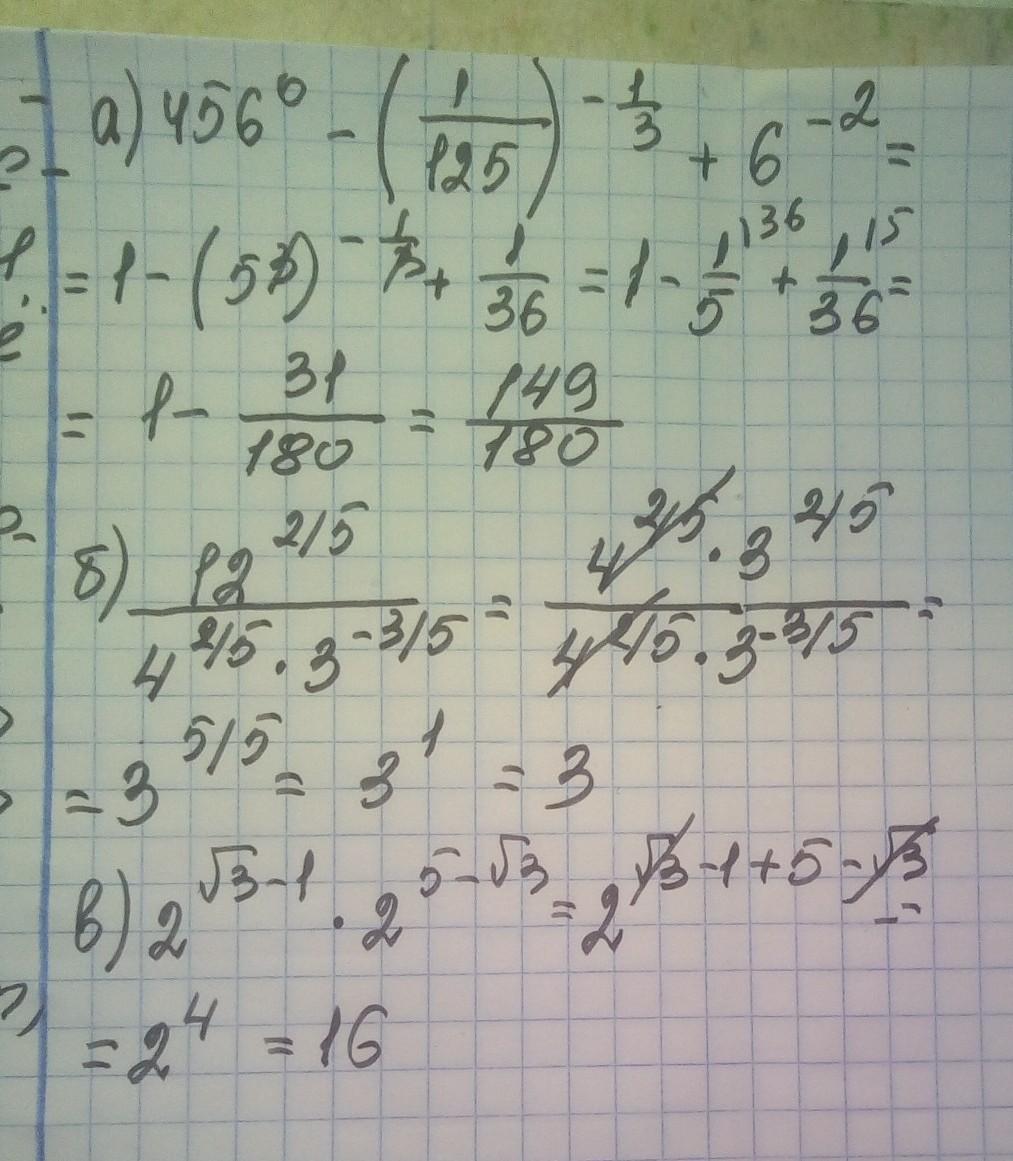 а) 456⁰ - (1/125)^(-1/3) + 6^(-2) =
= 1 - (5³)^(-1/3) + 1/36 = 1 - 1/5 |36 + 1/36 |5 =
= 1 - 31/180 = 149/180
б) 12^(2/5) / (4^(2/5) · 3^(-3/5)) = (4^(2/5) · 3^(2/5)) / (4^(2/5) · 3^(-3/5)) =
= 3^(5/5) = 3^1 = 3
в) 2^(√3-1) · 2^(5-√3) = 2^(√3-1+5-√3) =
= 2^4 = 16